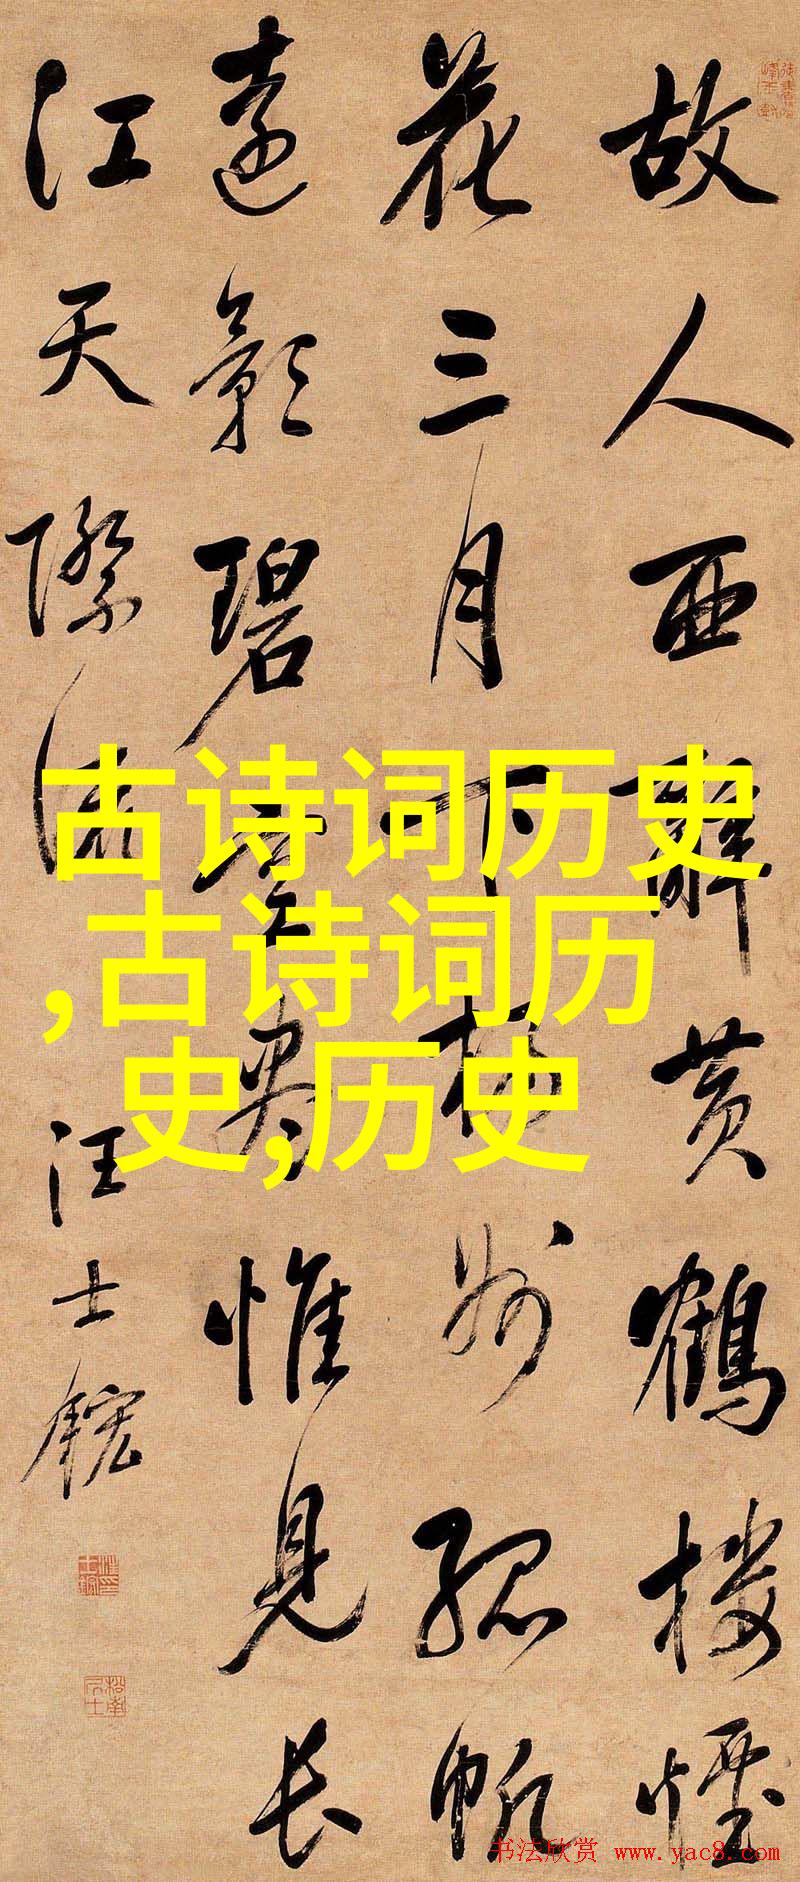 故人西辭黄鶴楼煙
花三月下揚州孤帆
遠影碧空盡惟見长
江天際流
汪士鋐
古诗词历史
,古诗词历
史,历史
书法欣赏 www.yac8.com